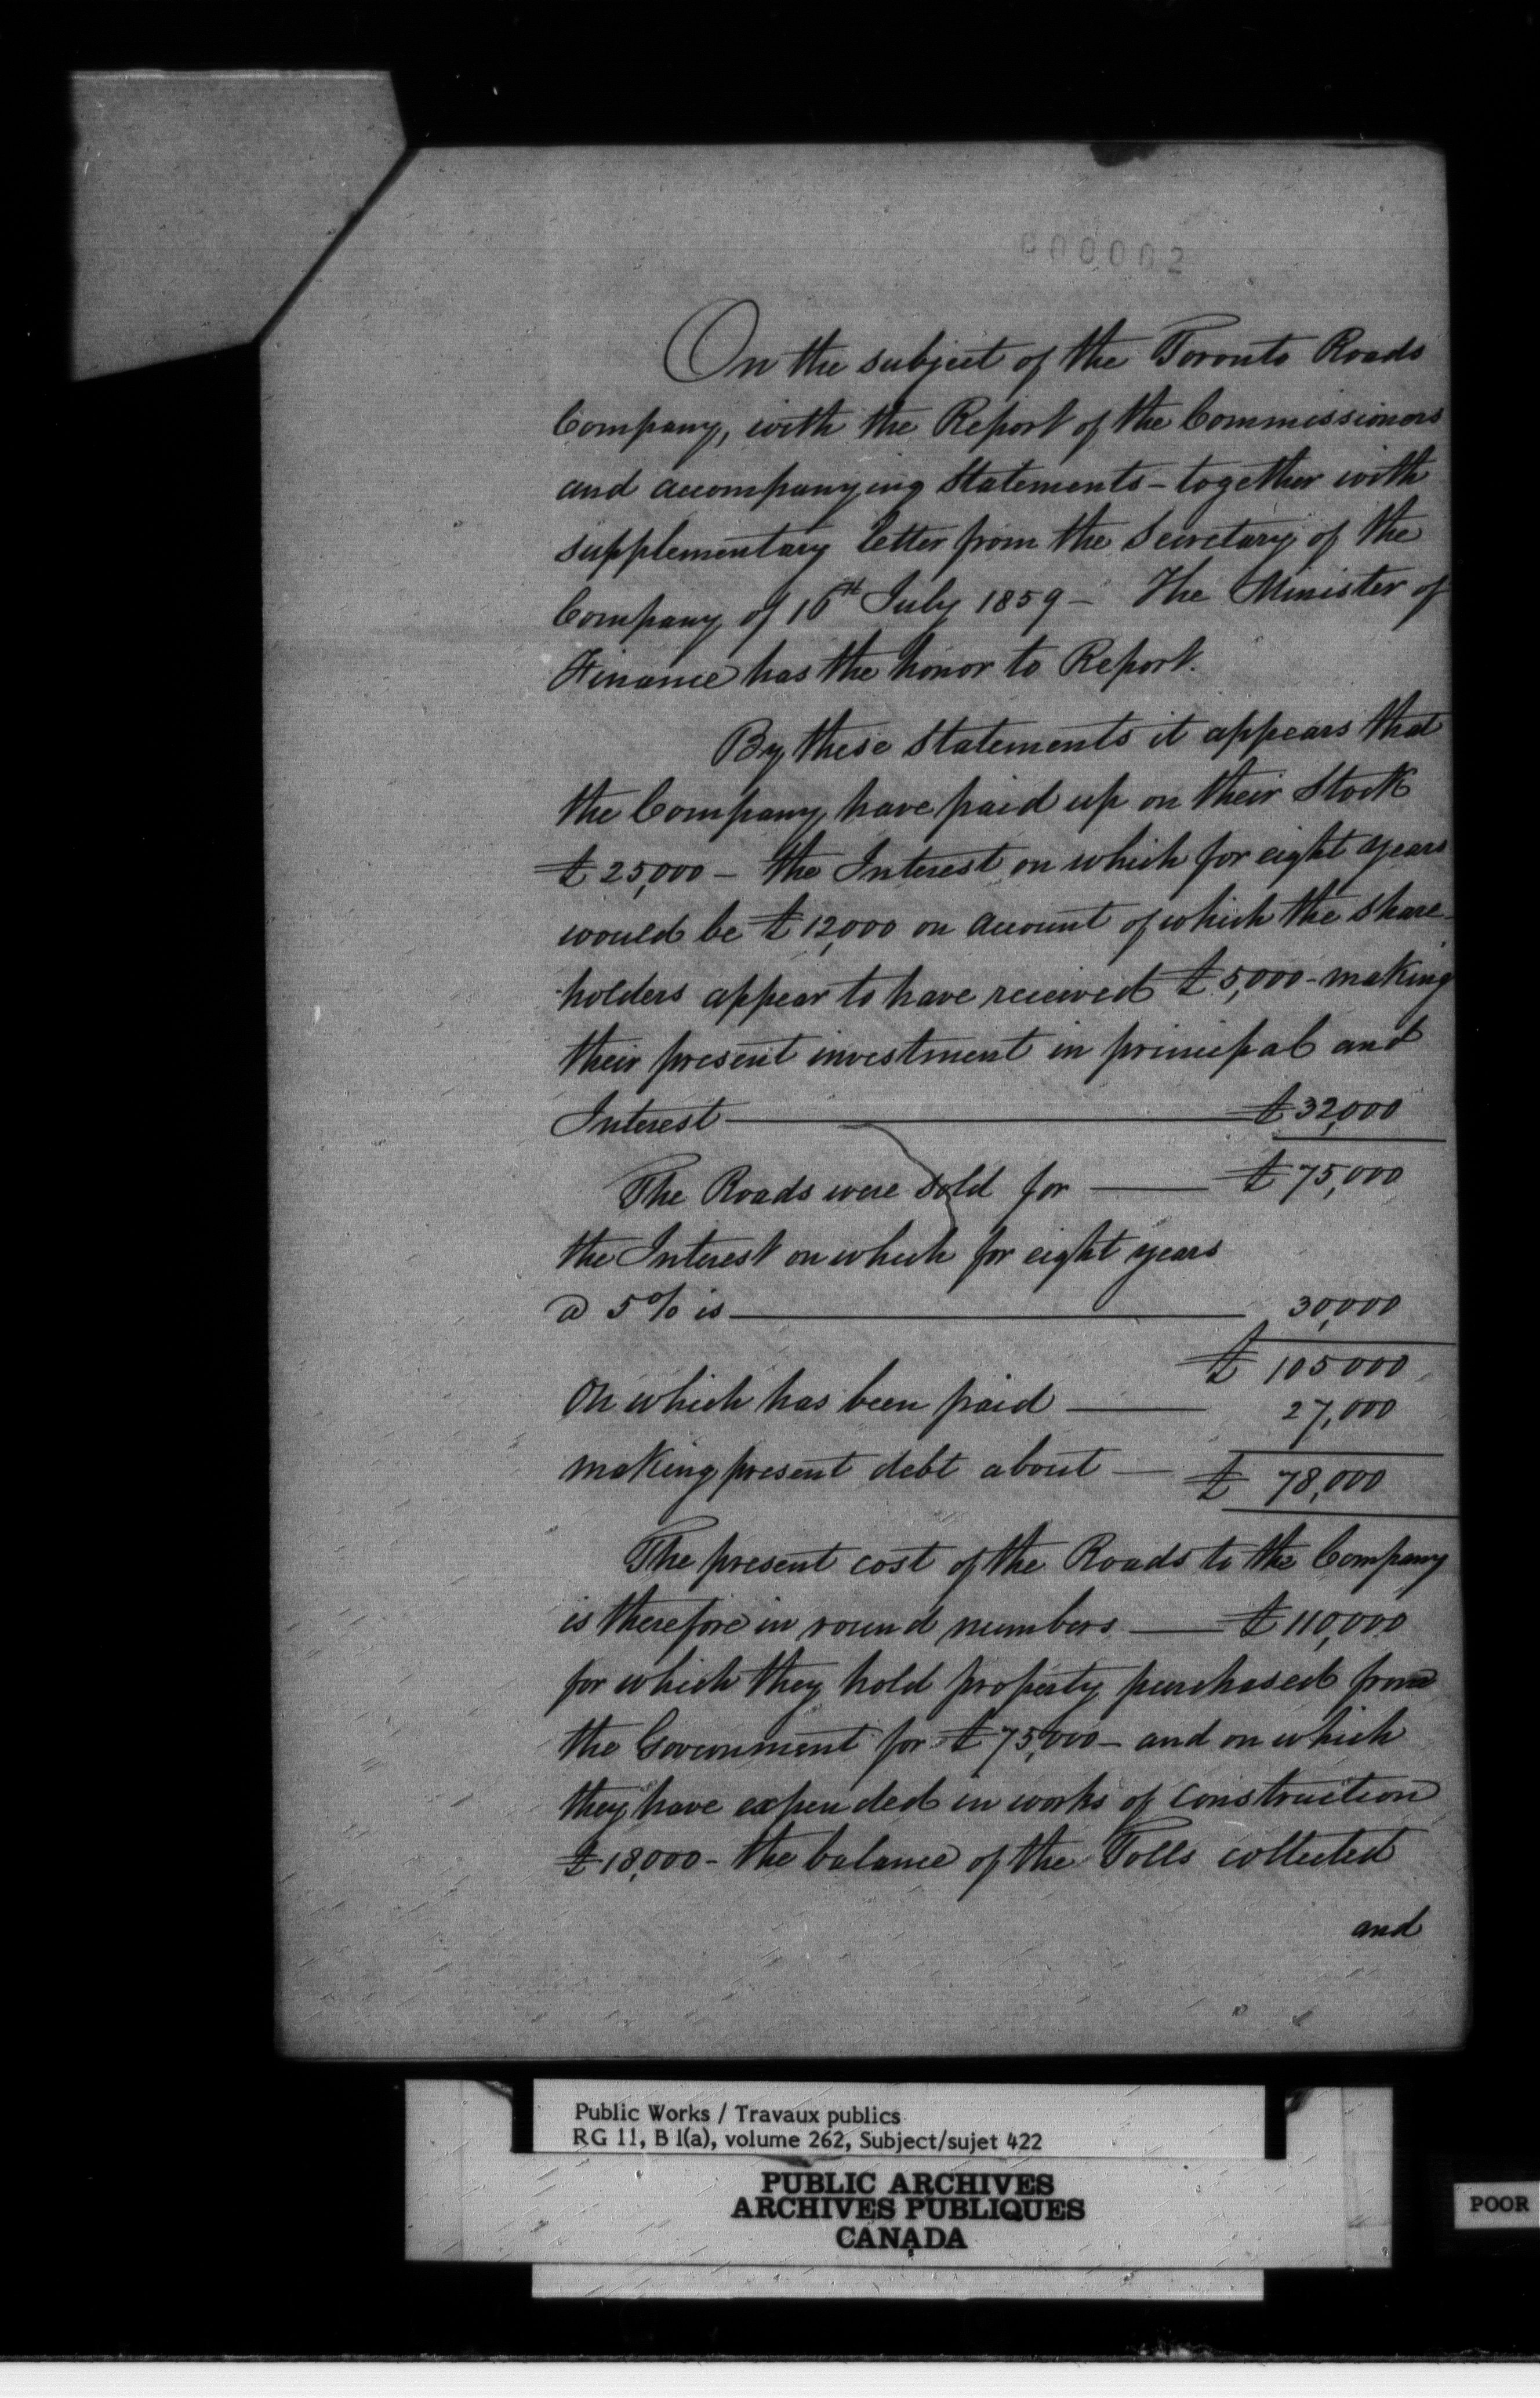 000002
On the subject of the Toronto Roads
Company, with the Report of the Commissioners
and accompanying Statements - together with
supplementary letter from the Secretary of the
Company of 16th July 1859 - The Minister of
Finance has the honor to Report.
By these Statements it appears that
the Company have paid up on their Stock
£25,000 - the Interest on which for eight years
would be £12,000 on account of which the share-
holders appear to have received £5,000 - making
their present investment in principal and
Interest £32,000
The Roads were sold for £75,000
the Interest on which for eight years
@ 5% is 30,000
£ 105000
On which has been paid 27,000
making present debt about £ 78,000
The present cost of the Roads to the Company
is therefore in round numbers £110,000
for which they hold property purchased from
the Government for £75,000 - and on which
they have expended in works of construction
£18,000 - the balance of the Tolls collected
and
Public Works / Travaux publics
RG 11, B 1(a), volume 262, Subject/sujet 422
PUBLIC ARCHIVES
ARCHIVES PUBLIQUES
CANADA
POOR